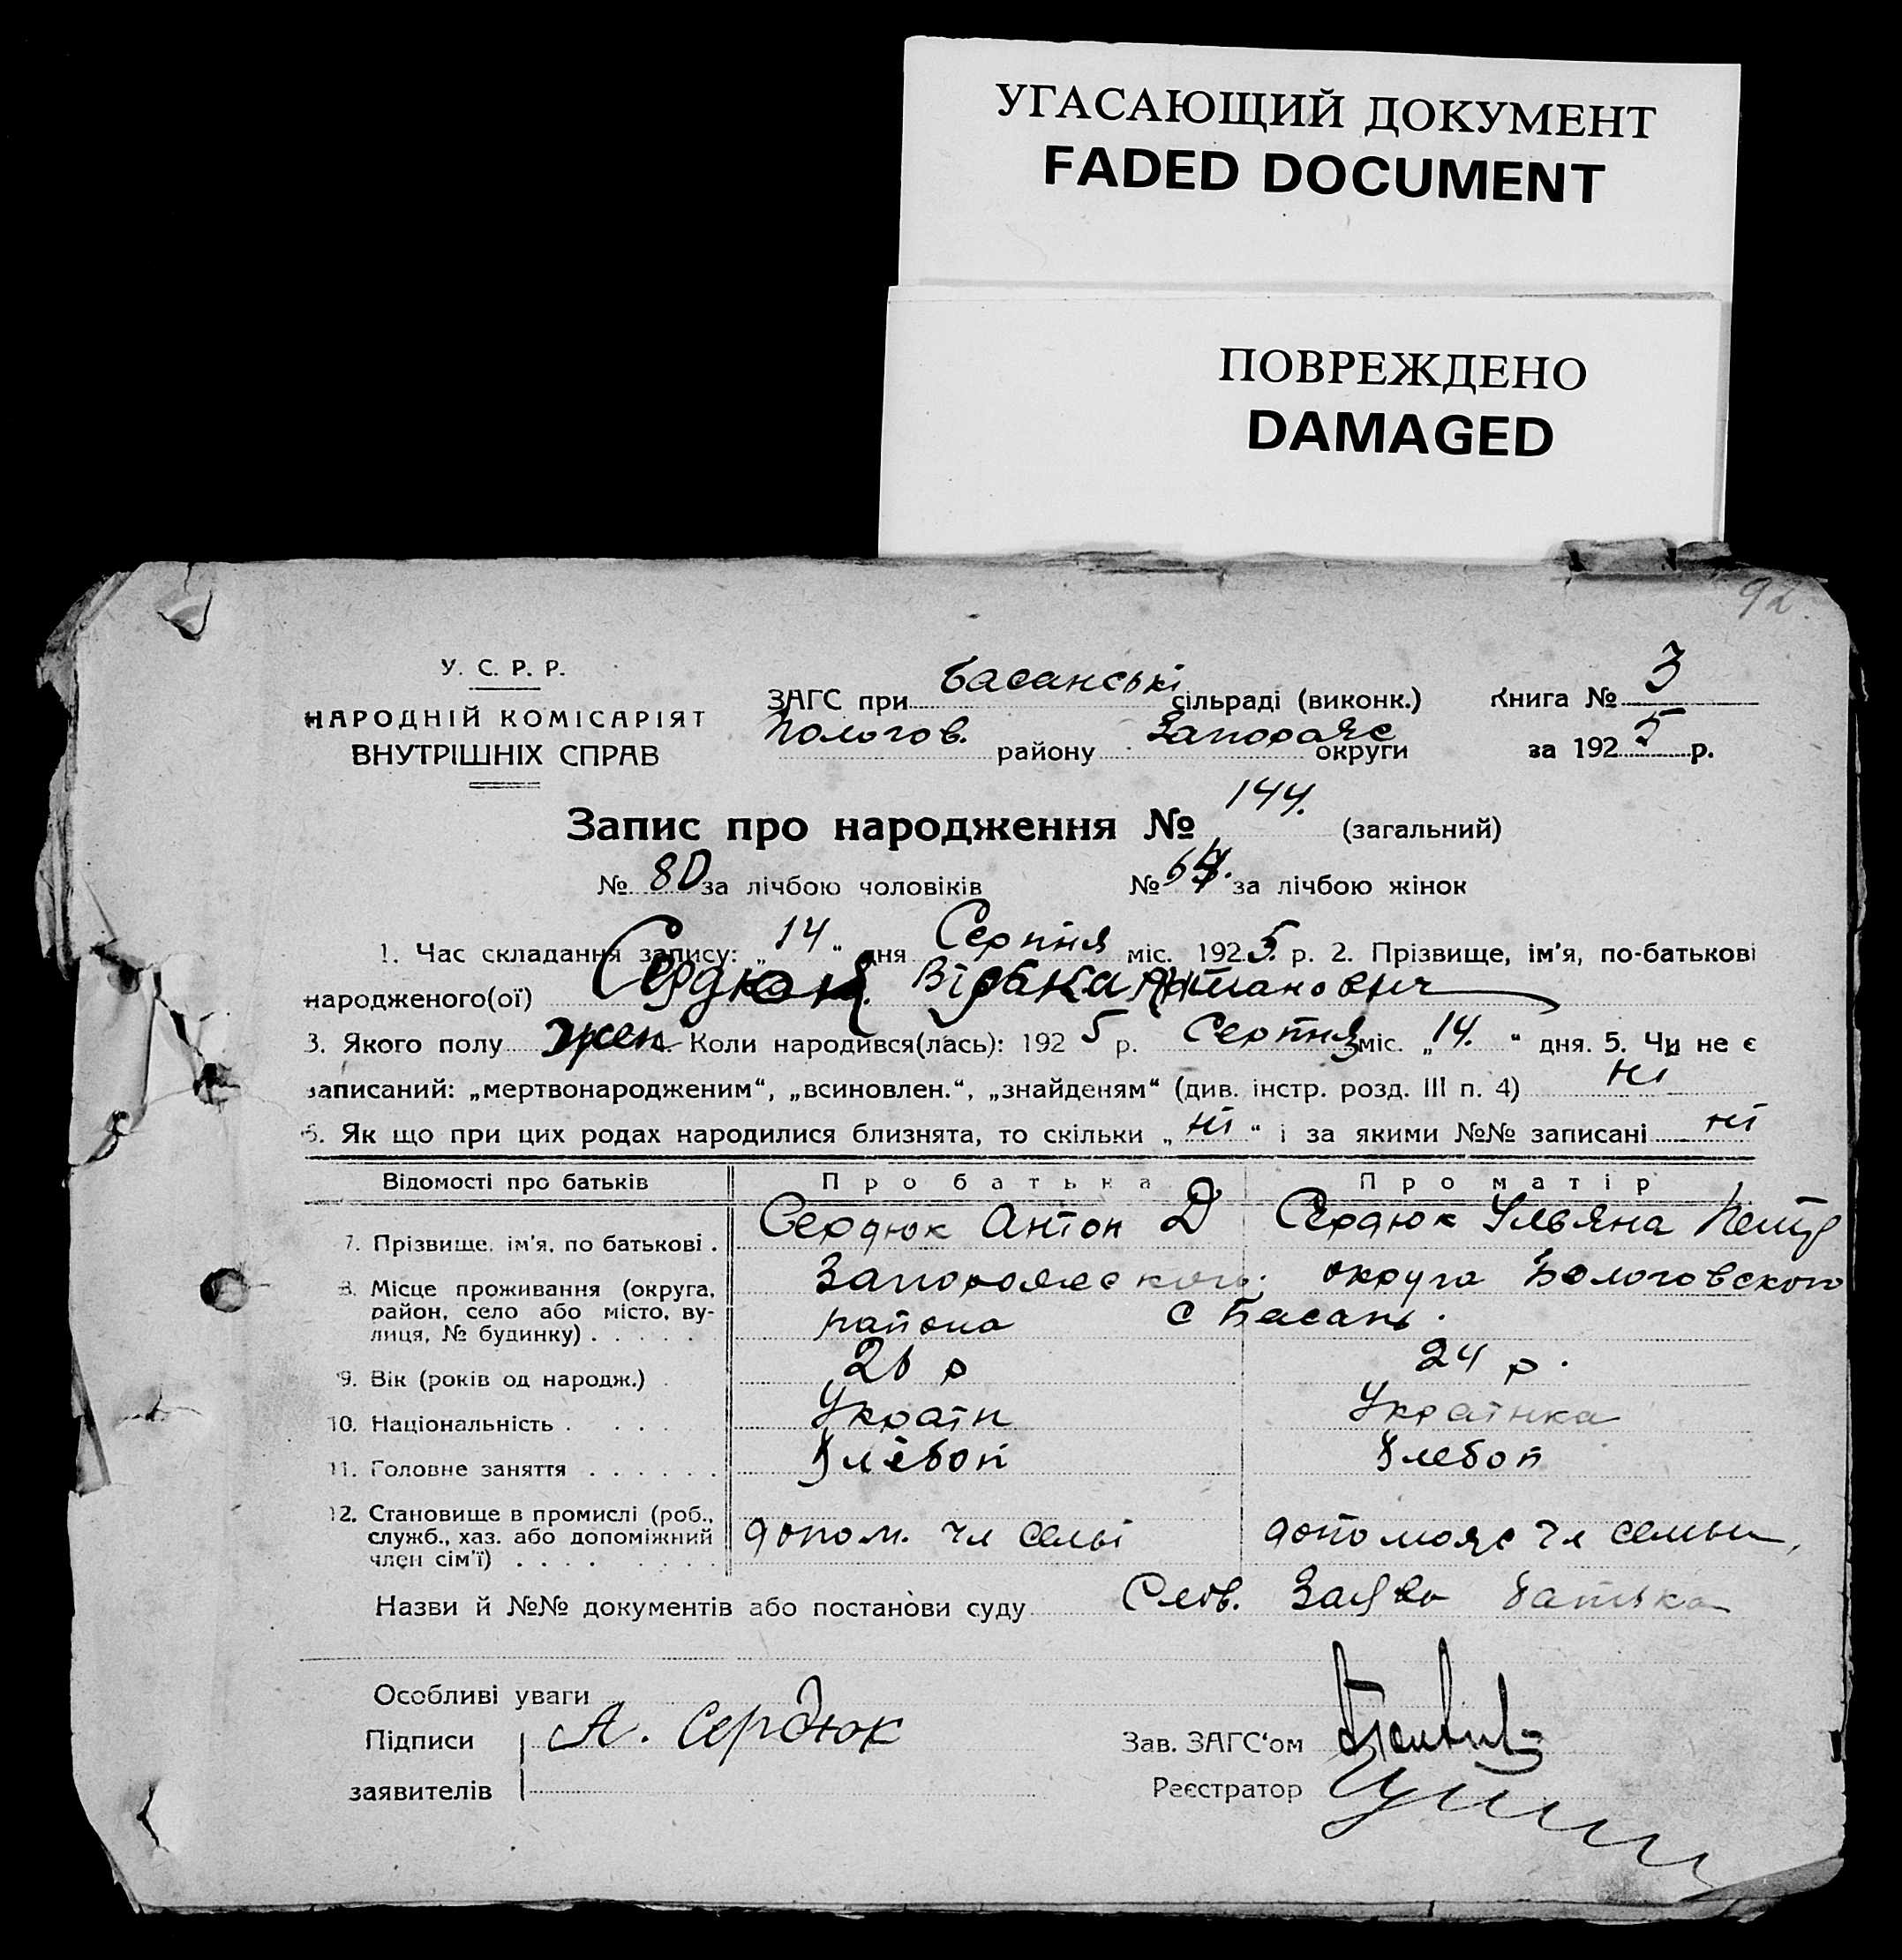 УГАСАЮЩИЙ ДОКУМЕНТ
FADED DOCUMENT
ПОВРЕЖДЕНО
DAMAGED
92
У. С. Р. Р.
НАРОДНІЙ КОМІСАРІЯТ
ВНУТРІШНІХ СПРАВ
ЗАГС при Басанські сільраді (виконк.) Книга № 3
Пологов. району Запорояс округи за 1925 р.
Запис про народження № 144. (загальний)
№ 80 за лічбою чоловіків № 64. за лічбою жінок
1. Час складання запису: „14“ дня Серпня міс. 1925 р. 2. Прізвище, ім'я, по-батькові
народженого(ої) Сердюк
3. Якого полу жен. Коли народився(лась): 1925 р. Серпня міс. „14.“ дня. 5. Чи не є
записаний: „мертвонародженим“, „всиновлен.“, „знайденям“ (див. інстр. розд. III п. 4) ні
6. Як що при цих родах народилися близнята, то скільки „ні“ і за якими №№ записані ні
Відомості про батьків Про батька Про матір
7. Прізвище, ім'я, по батькові . Сердюк Антон Д Сердюк Ульяна Петр
8. Місце проживання (округа, район, село або місто, вулиця, № будинку) . . . . . Запорояского округа Пологовского
района с Басань.
9. Вік (років од народж.) . 26 р 24 р.
10. Національність . . . . Украін Украінка
11. Головне заняття . . . . . . Хлебоп Хлебоп
12. Становище в промислі (роб., служб., хаз. або допоміжний член сім'ї) . . . . . . . . допом. чл семьі допомояс чл семьи,
Назви й №№ документів або постанови суду Слов. Заява батька
Особливі уваги
Підписи А. Сердюк Зав. ЗАГС'ом
заявителів Реєстратор